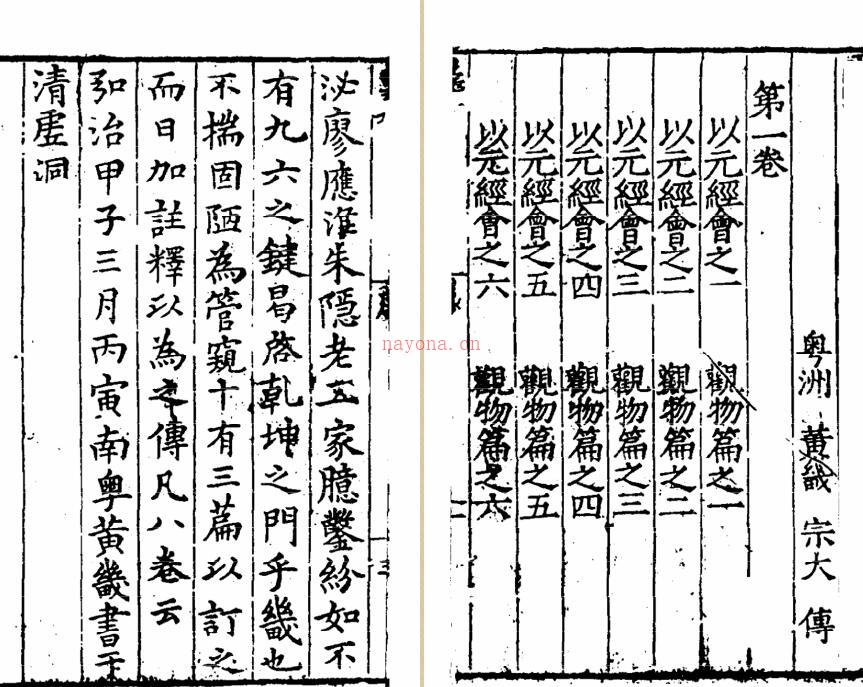 粵洲 黃畿 宗大 傳
第一卷
以元經會之一 觀物篇之一
以元經會之二 觀物篇之二
以元經會之三 觀物篇之三
以元經會之四 觀物篇之四
以元經會之五 觀物篇之五
以元經會之六 觀物篇之六
泌廖應淮朱隱老五家臆鑿紛如不
有九六之鍵曷啓乾坤之門乎畿也
不揣固陋為管窺十有三篇以訂之
而日加註釋以為之傳凡八卷云
弘治甲子三月丙寅南粵黃畿書于
清虛洞
nayona.cn